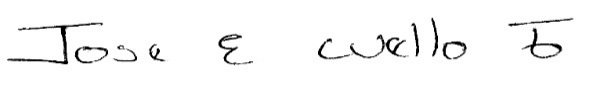 Jose E Cuello T